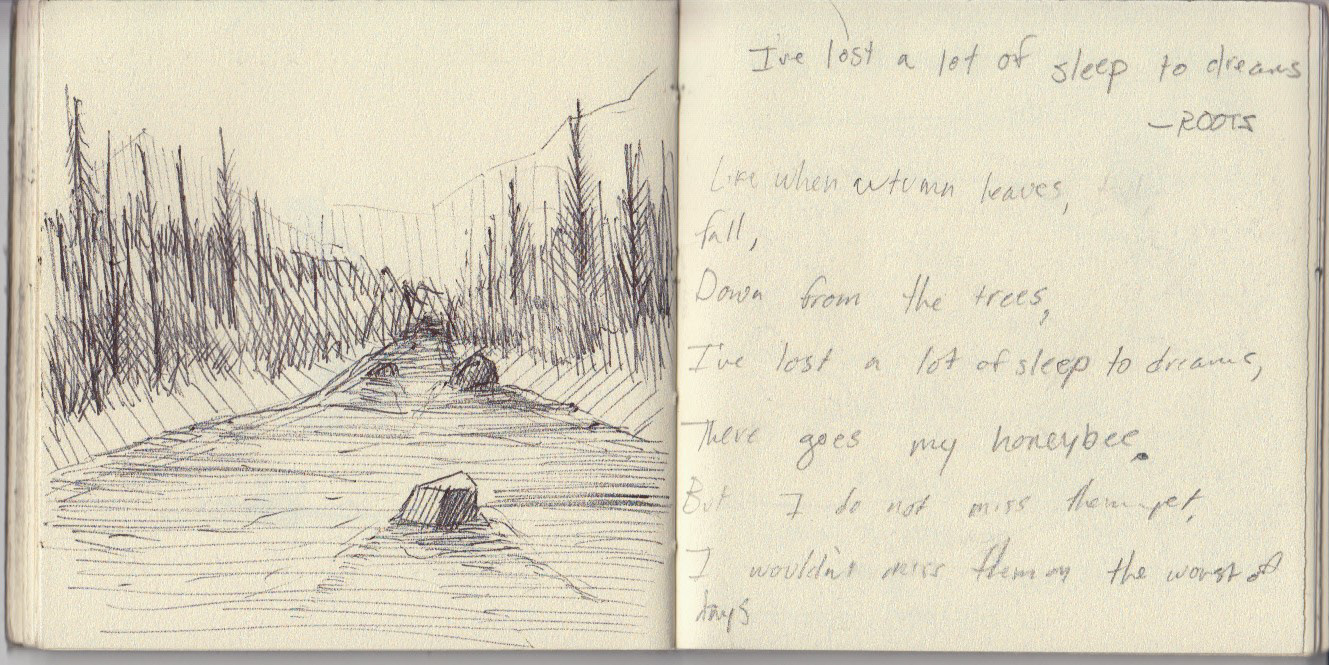 I've lost a lot of sleep to dreams
—ROOTS
Like when autumn leaves,
fall,
Down from the trees,
I've lost a lot of sleep to dreams,
There goes my honeybee.
But I do not miss them yet,
I wouldn't miss them on the worst of
days